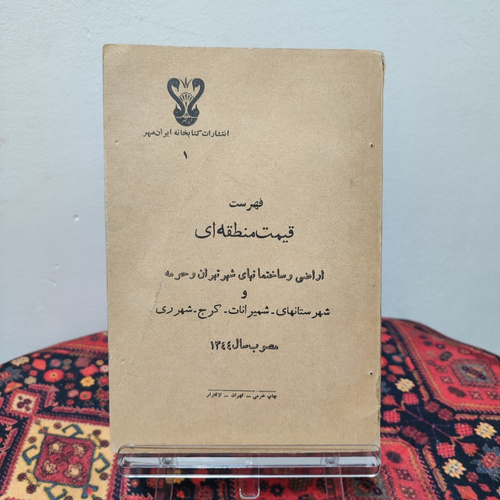 انتشارات کتابخانه ایران مهر
۱
فهرست
قیمت منطقه‌ای
اراضی و ساختمانهای شهر تهران و حومه
و
شهرستانهای - شمیرانات - کرج - شهر ری
مصوب سال ۱۳۴۴
چاپ خرمی - تهران - لاله‌زار